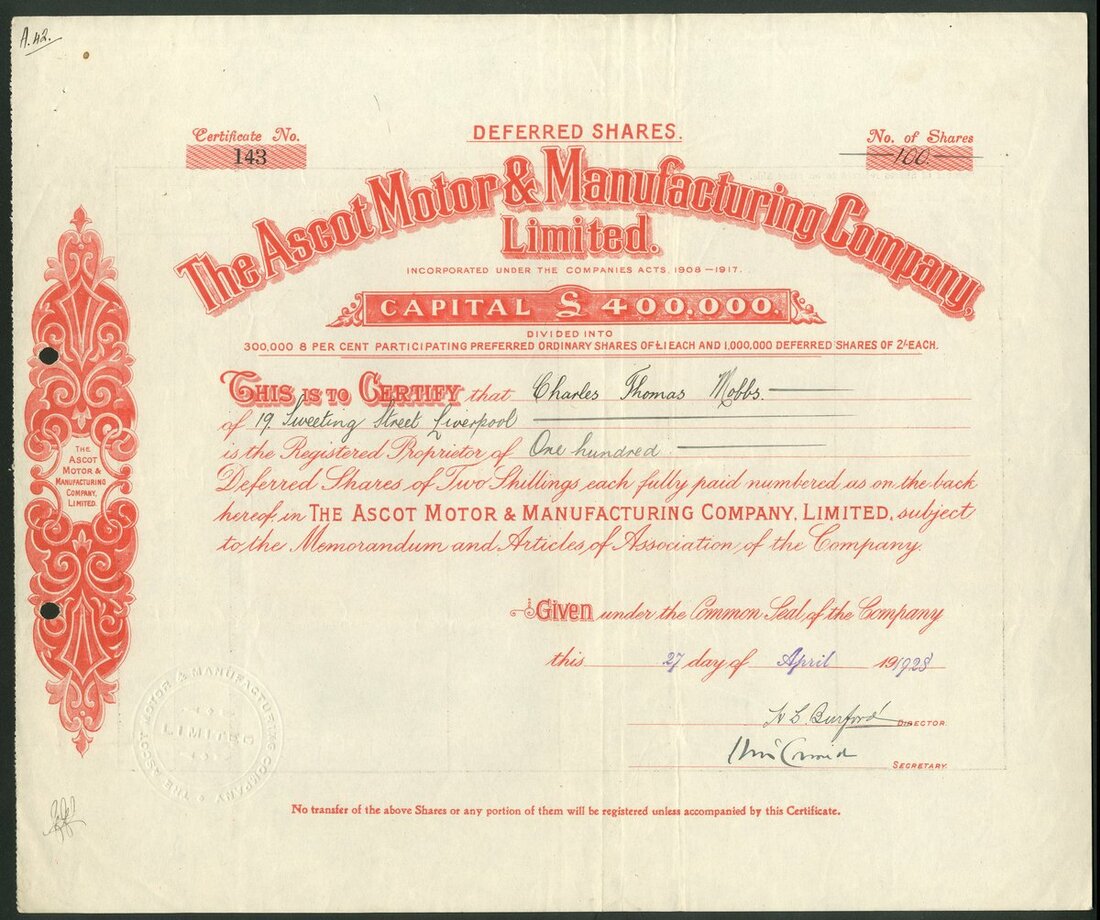 A.42.
Certificate No.
143
DEFERRED SHARES.
No. of Shares
100
The Ascot Motor & Manufacturing Company,
Limited.
INCORPORATED UNDER THE COMPANIES ACTS, 1908–1917.
CAPITAL £ 400.000.
DIVIDED INTO
300,000 8 PER CENT PARTICIPATING PREFERRED ORDINARY SHARES OF £1 EACH AND 1,000,000 DEFERRED SHARES OF 2/- EACH.
THIS IS TO CERTIFY that Charles Thomas Mobbs
of 19. Sweeting Street Liverpool
is the Registered Proprietor of One hundred
Deferred Shares of Two Shillings each fully paid numbered as on the back
hereof, in THE ASCOT MOTOR & MANUFACTURING COMPANY, LIMITED, subject
to the Memorandum and Articles of Association, of the Company.
THE
ASCOT
MOTOR &
MANUFACTURING
COMPANY,
LIMITED.
Given under the Common Seal of the Company
this 27 day of April 191928
DIRECTOR.
SECRETARY.
THE ASCOT MOTOR & MANUFACTURING COMPANY
LIMITED
No transfer of the above Shares or any portion of them will be registered unless accompanied by this Certificate.